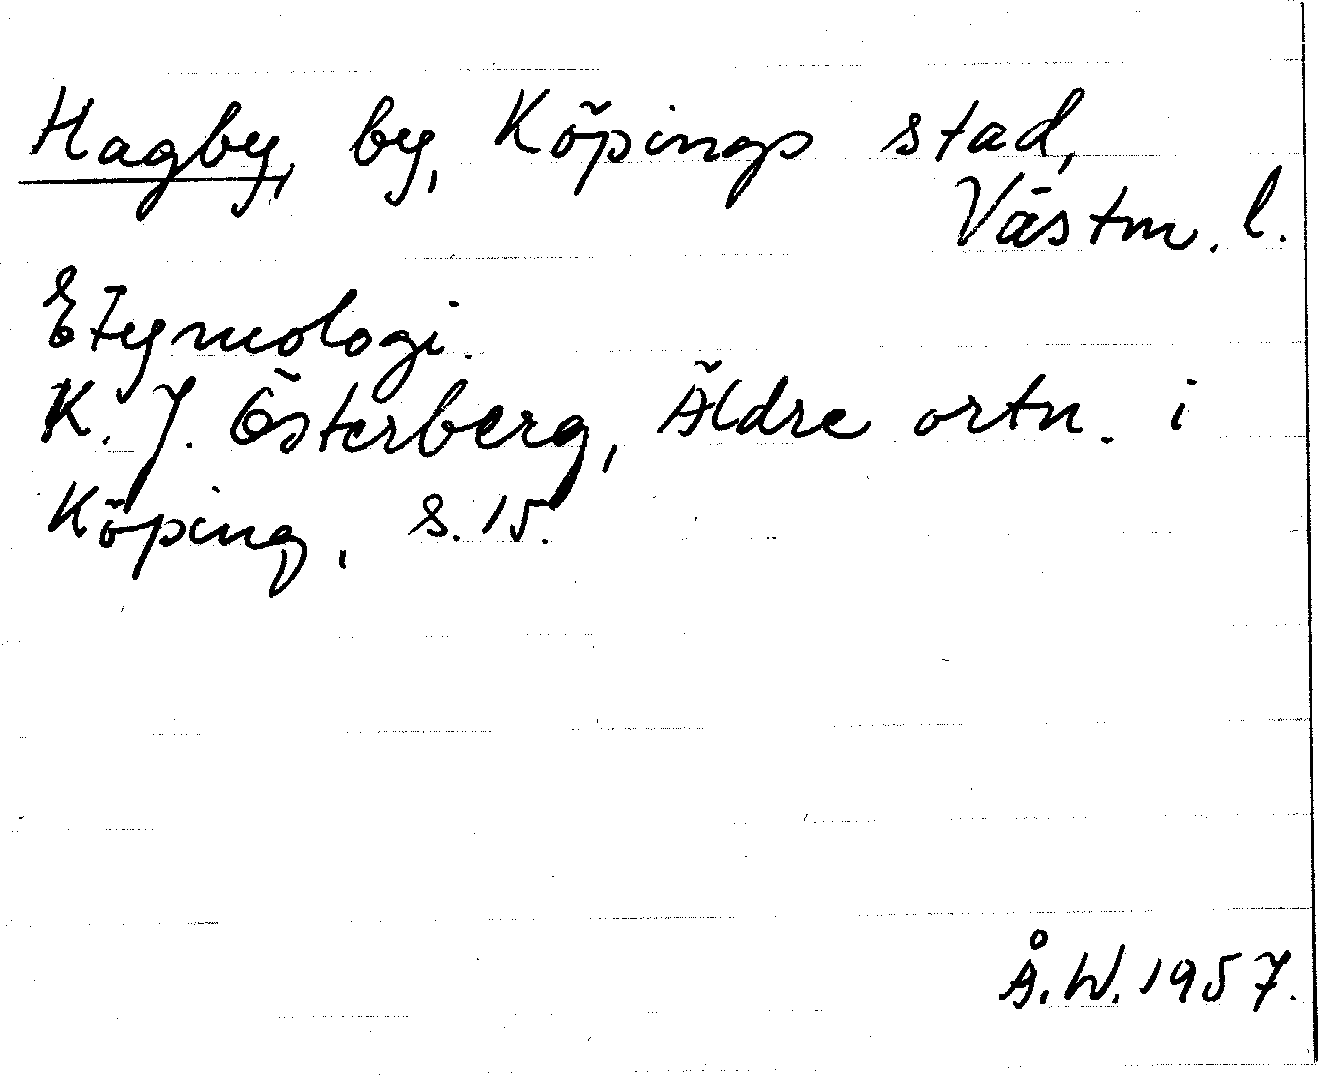 Hagby, by, Köpings stad,
Västm. l.
Etymologi.
K. J. Österberg, Äldre ortn. i
Köping, s. 15.
Å. W. 1957.